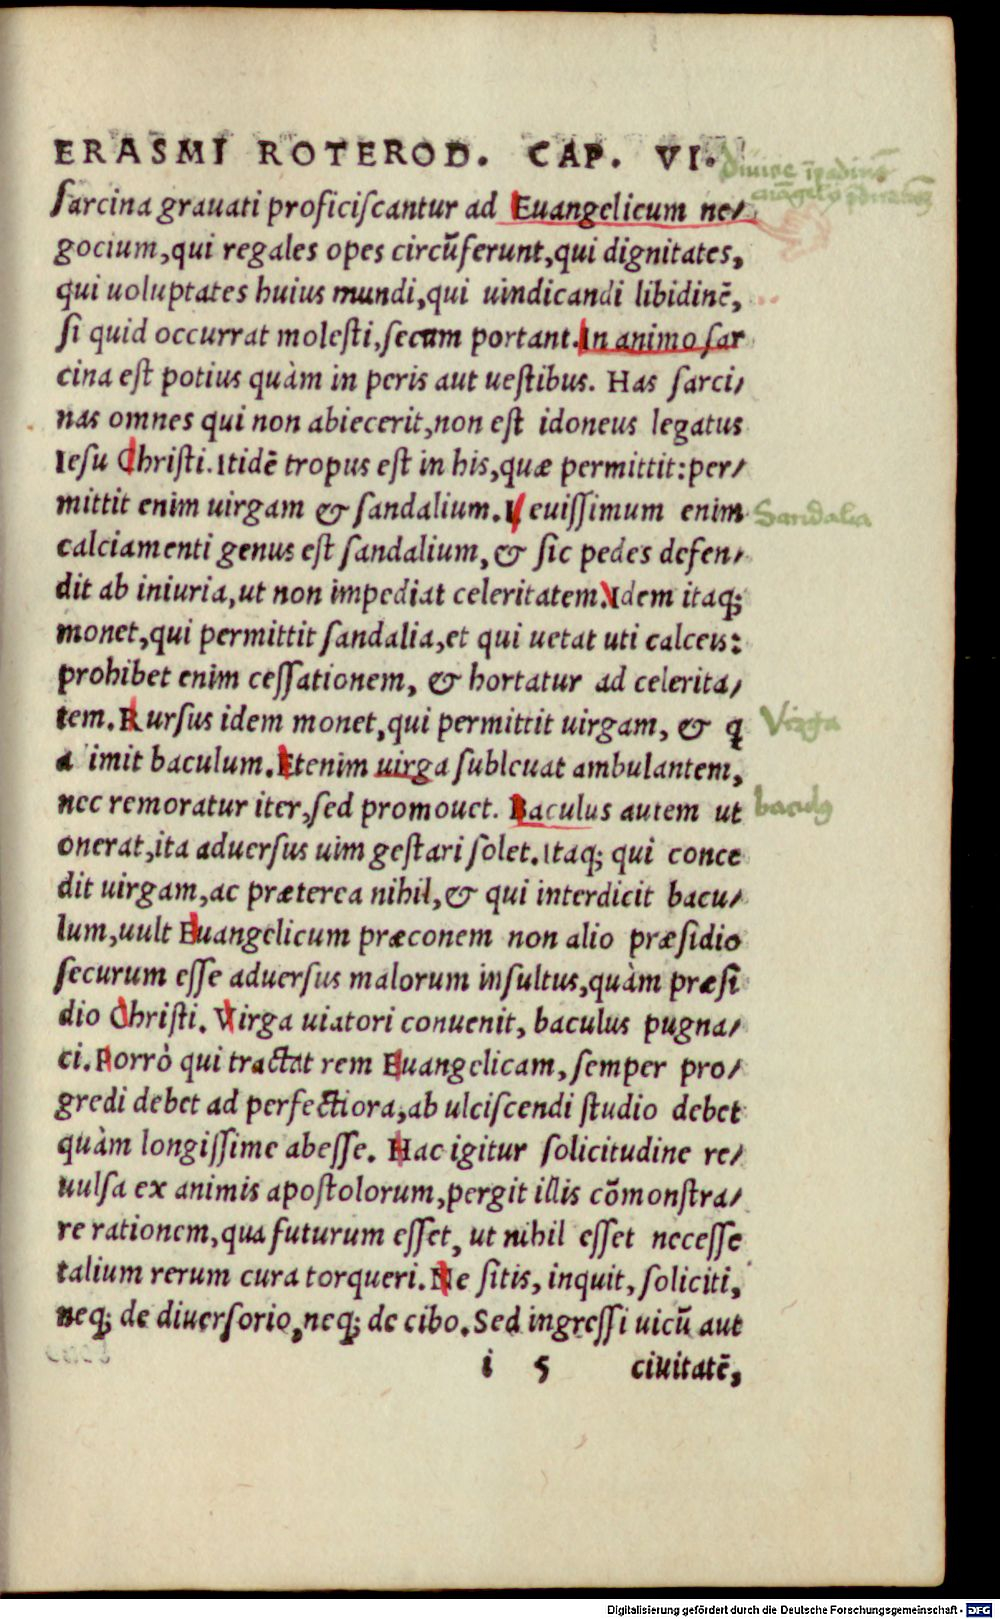 ERASMI ROTEROD. CAP. VI.
sarcina grauati proficiscantur ad Euangelicum ne/
gocium, qui regales opes circũferunt, qui dignitates,
qui uoluptates huius mundi, qui uindicandi libidinẽ,
si quid occurrat molesti, secum portant. In animo sar
cina est potius quàm in peris aut uestibus. Has sarci/
nas omnes qui non abiecerit, non est idoneus legatus
Iesu Christi. Itidẽ tropus est in his, quæ permittit: per/
mittit enim uirgam & sandalium. Leuissimum enim
Sandalia
calciamenti genus est sandalium, & sic pedes defen/
dit ab iniuria, ut non impediat celeritatem. Idem itaq;
monet, qui permittit sandalia, et qui uetat uti calceis:
prohibet enim cessationem, & hortatur ad celerita/
tem. Rursus idem monet, qui permittit uirgam, & q
Virga
adimit baculum. Etenim uirga subleuat ambulantem,
nec remoratur iter, sed promouet. Baculus autem ut
baculus
onerat, ita aduersus uim gestari solet. Itaq; qui conce
dit uirgam, ac præterea nihil, & qui interdicit bacu/
lum, uult Euangelicum præconem non alio præsidio
securum esse aduersus malorum insultus, quàm præsi
dio Christi. Virga uiatori conuenit, baculus pugna/
ci. Porrò qui tractat rem Euangelicam, semper pro/
gredi debet ad perfectiora, ab ulciscendi studio debet
quàm longissime abesse. Hac igitur solicitudine re/
uulsa ex animis apostolorum, pergit illis cõmonstra/
re rationem, qua futurum esset, ut nihil esset necesse
talium rerum cura torqueri. Ne sitis, inquit, soliciti,
neq; de diuersorio, neq; de cibo. Sed ingressi uicũ aut
i 5 ciuitatẽ,
Digitalisierung gefördert durch die Deutsche Forschungsgemeinschaft - DFG